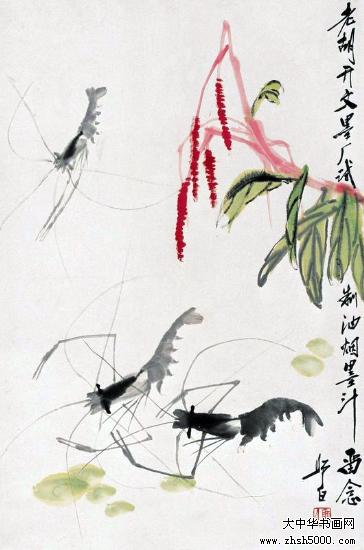 老胡开文墨厂试制油烟墨汁留念
大中华书画网
www.zhsh5000.com